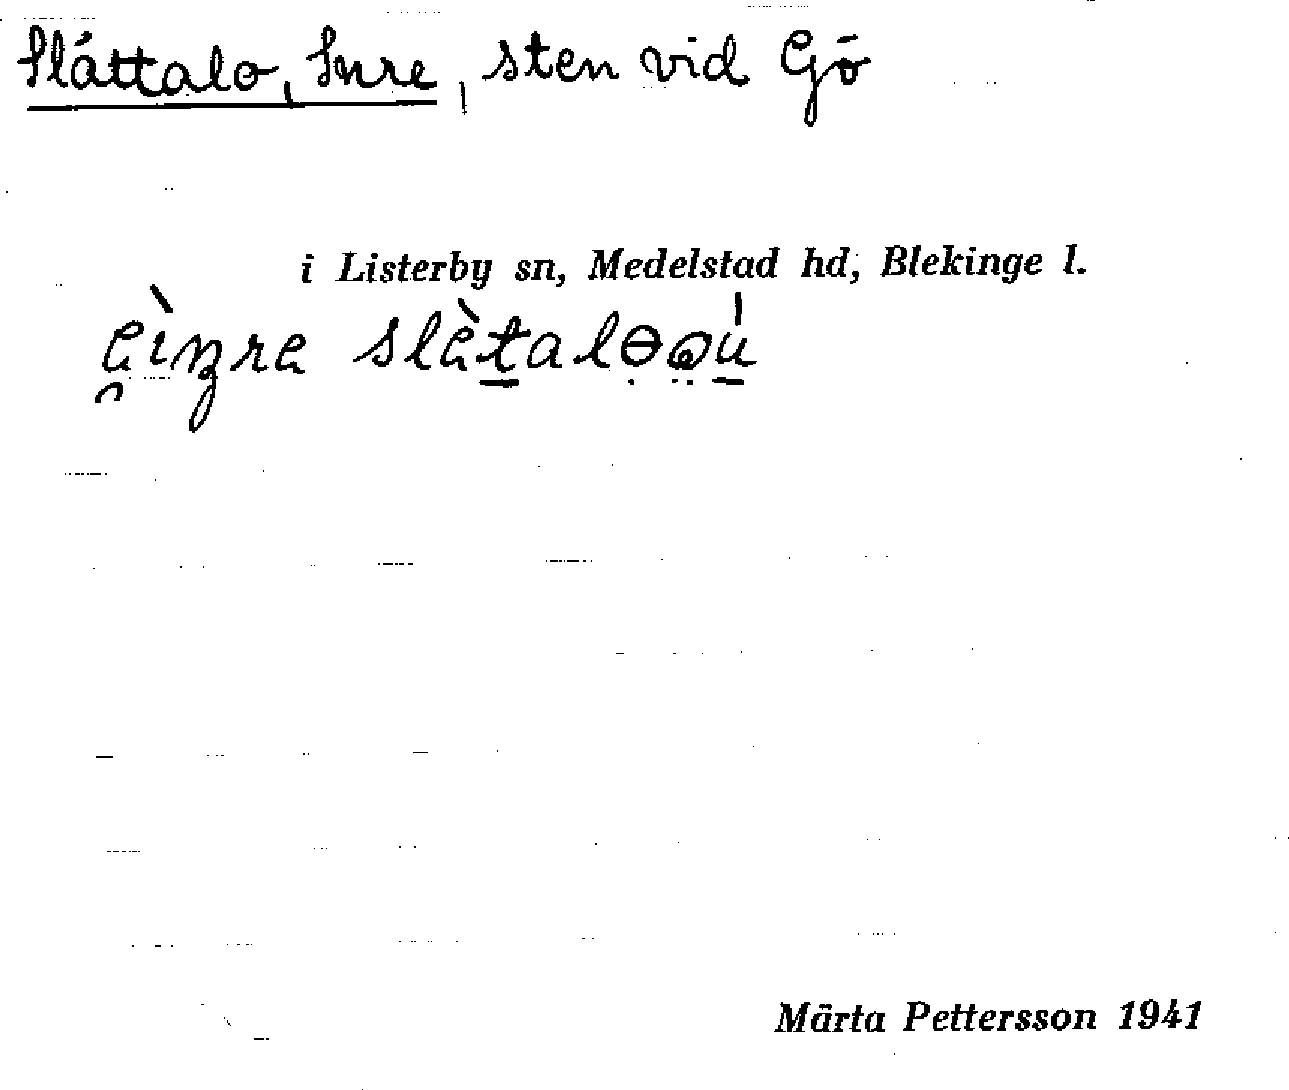 Slättalo, Inre, sten vid Gö
i Listerby sn, Medelstad hd, Blekinge l.
Märta Pettersson 1941